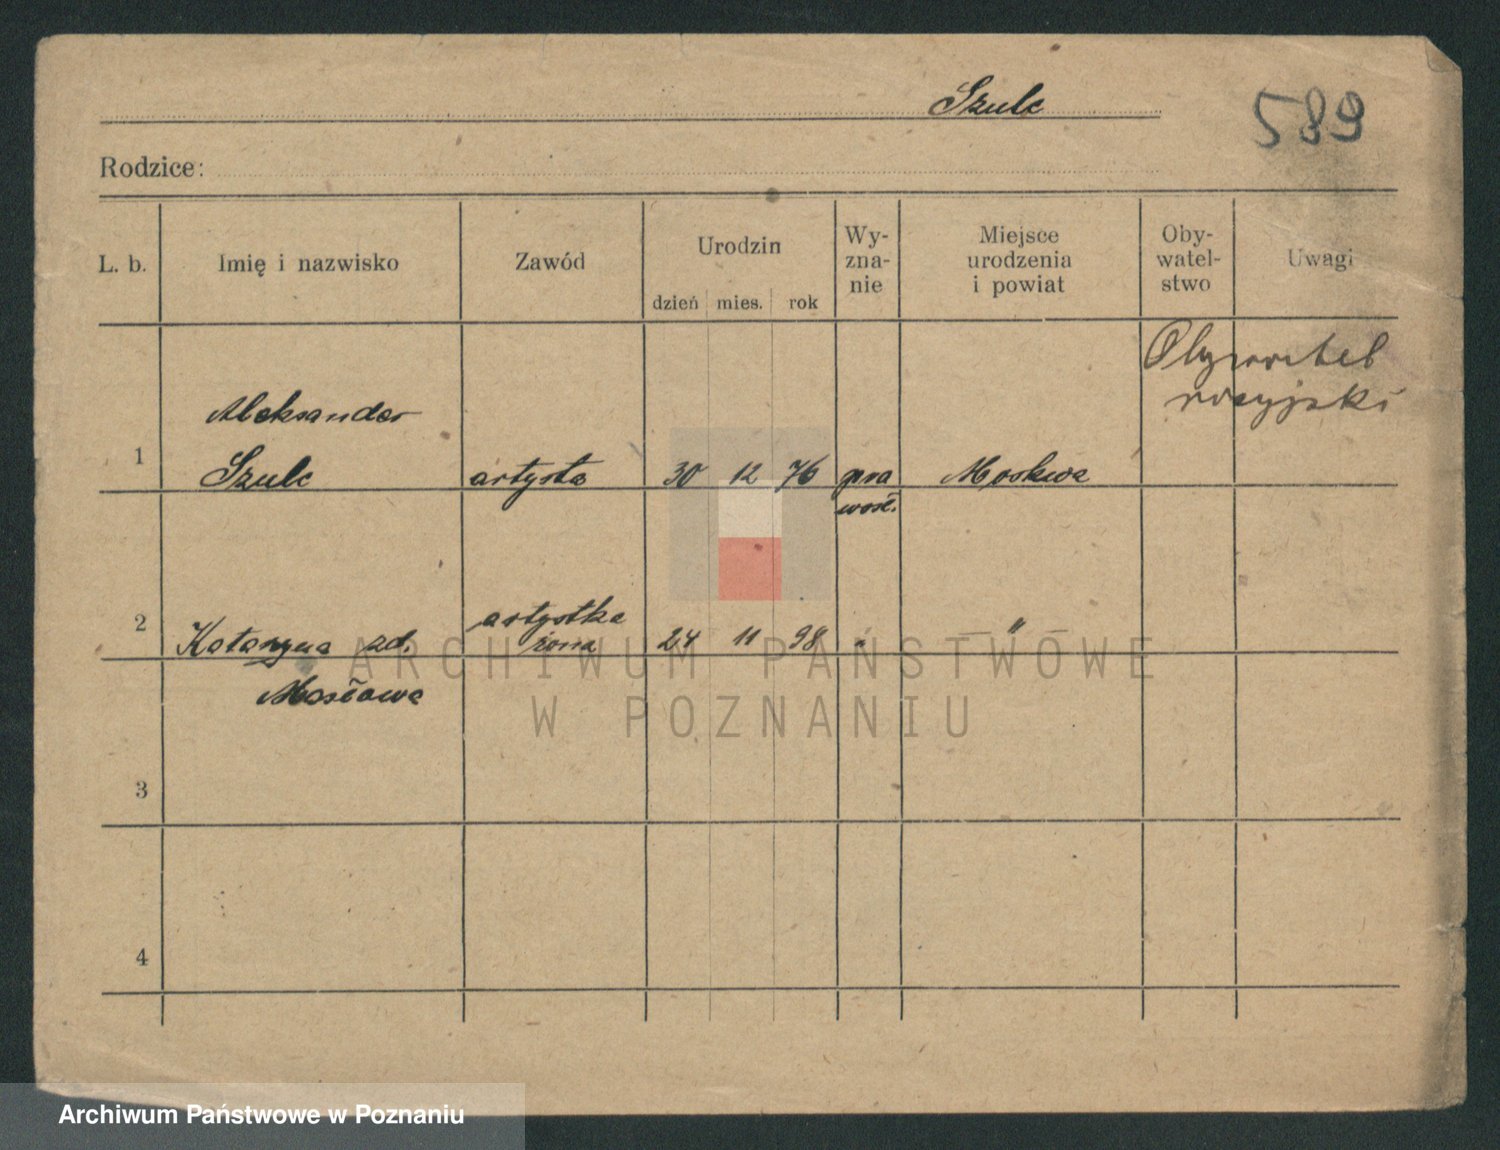 Szulc
589
Rodzice:
L. b.
Imię i nazwisko
Zawód
Urodzin
dzień mies. rok
Wy-
zna-
nie
Miejsce
urodzenia
i powiat
Oby-
watel-
stwo
Uwagi
Obywatel
rosyjski
1
Aleksander
Szulc
artysta
30 12 76
pra
wosł.
Moskwa
2
Katarzyna zd.
Masłowa
artystka
żona
24 11 98
"
— " —
3
4
ARCHIWUM PAŃSTWOWE
W POZNANIU
Archiwum Państwowe w Poznaniu